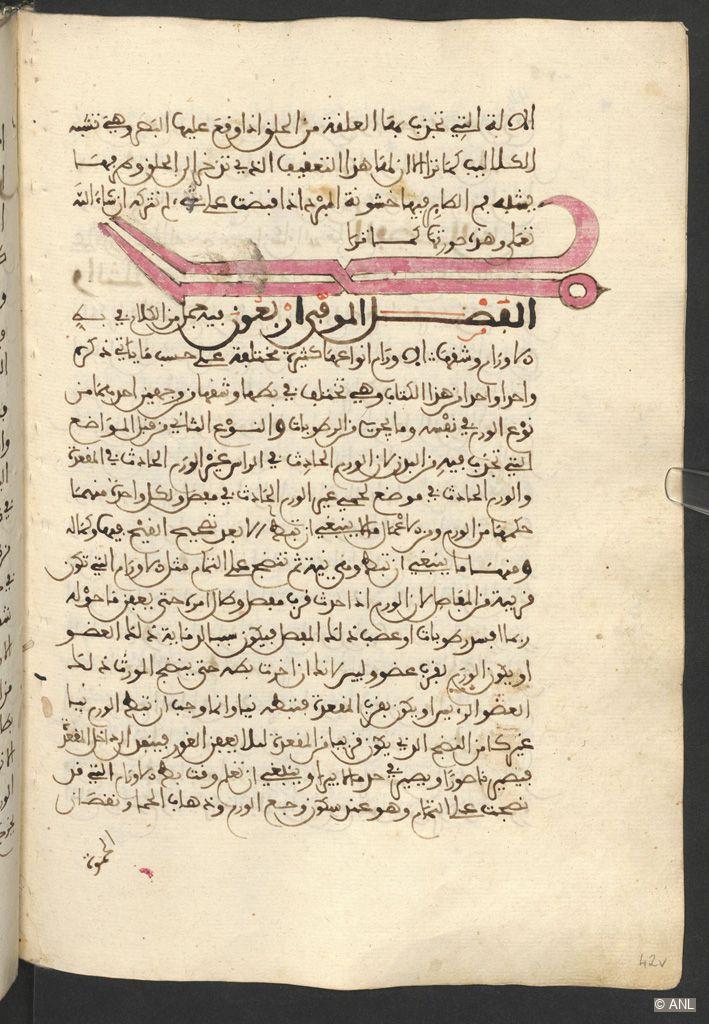 الآلة التي تجذب بها العلقة من الحلق اذا وقع عليها البصر وهي تشبه
الكلاليب كما ترى الا ان لها هذا التعقيف الذي تدخل في الحلق وطرفها
يشبه فم الطاير فيها خشونة المبرد اذا قبضت على شيء لم تتركه ان شاء الله
تعلى وهذه صورتها كما ترى
الفصل الموفي اربعون فيه جمل من الكلام في بط
الاورام وشقها الاورام انواعها كثيرة مختلفة على حسب ما ياتي ذكره
واحدا واحدا من هذا الكتاب وهي تختلف في بطها وشقها من وجهين احدهما من
نوع الورم في نفسه وما يحوي من الرطوبات والنوع الثاني من قبل المواضع
التي تحدث فيه من البدن لان الورم الحادث في الراس غير الورم الحادث في المقعدة
والورم الحادث في موضع لحمي غير الورم الحادث في مفصل ولكل واحدة منهما
حكمها من العمل ومن الاورام ما لا ينبغي ان تبط الا بعد نضيج القيح فيها وكماله
ومنها ما ينبغي ان تبط وهي نية لم تنضج على التمام مثل الاورام التي تكون
قريبة من المفاصل لان الورم اذا حدث قرب مفصل وطال امره حتى يعفن ما حوله
ربما افسد رطوبات او عصب ذلك المفصل فيكون سببا لزمانة ذلك العضو
او يكون الورم بقرب عضو رييس لانك ان اخرت بطه حتى ينضج اضر بذلك
العضو الرييس او يكون بقرب المقعدة فتبطه نيا وانما وجب ان تبط الورم نيا
غير كامن النضج الذي يكون قريبا من المقعدة ليلا يعفن الغور فينفذ الى داخل المقعدة
فيصير ناصورا ويصير في حد ما لا يبرا وينبغي ان تعلم وقت بط الاورام التي قد
نضجت على التمام وهو عند سكون وجع الورم وذهاب الحما ونقصان
الحمرة
42v
© ANL